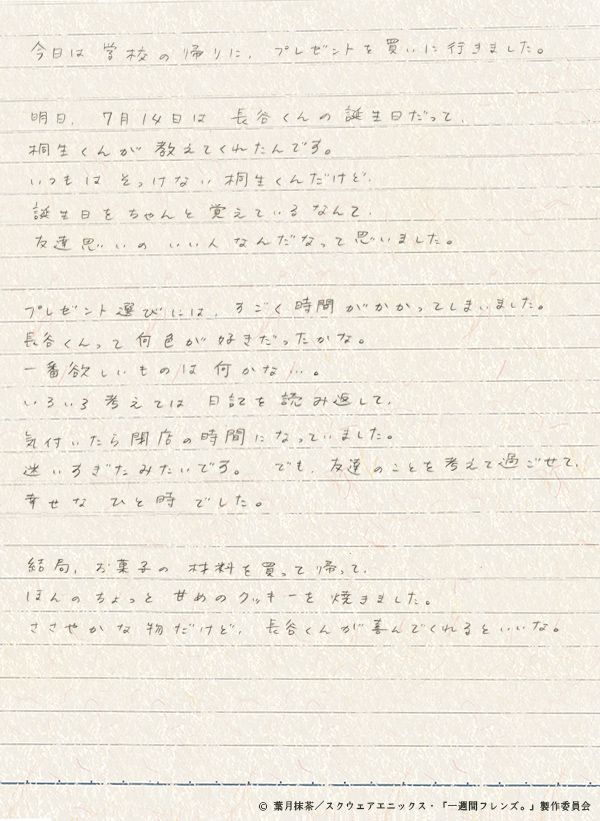 今日は学校の帰りに、プレゼントを買いに行きました。
明日、7月14日は長谷くんの誕生日だって、
桐生くんが教えてくれたんです。
いつもはそっけない桐生くんだけど、
誕生日をちゃんと覚えているなんて、
友達思いのいい人なんだなって思いました。
プレゼント選びには、すごく時間がかかってしまいました。
長谷くんって何色が好きだったかな。
一番欲しいものは何かな…。
いろいろ考えては日記を読み返して、
気付いたら閉店の時間になっていました。
迷いすぎたみたいです。でも、友達のことを考えて過ごせて、
幸せなひと時でした。
結局、お菓子の材料を買って帰って、
ほんのちょっと甘めのクッキーを焼きました。
ささやかな物だけど、長谷くんが喜んでくれるといいな。
© 葉月抹茶／スクウェアエニックス・「一週間フレンズ。」製作委員会